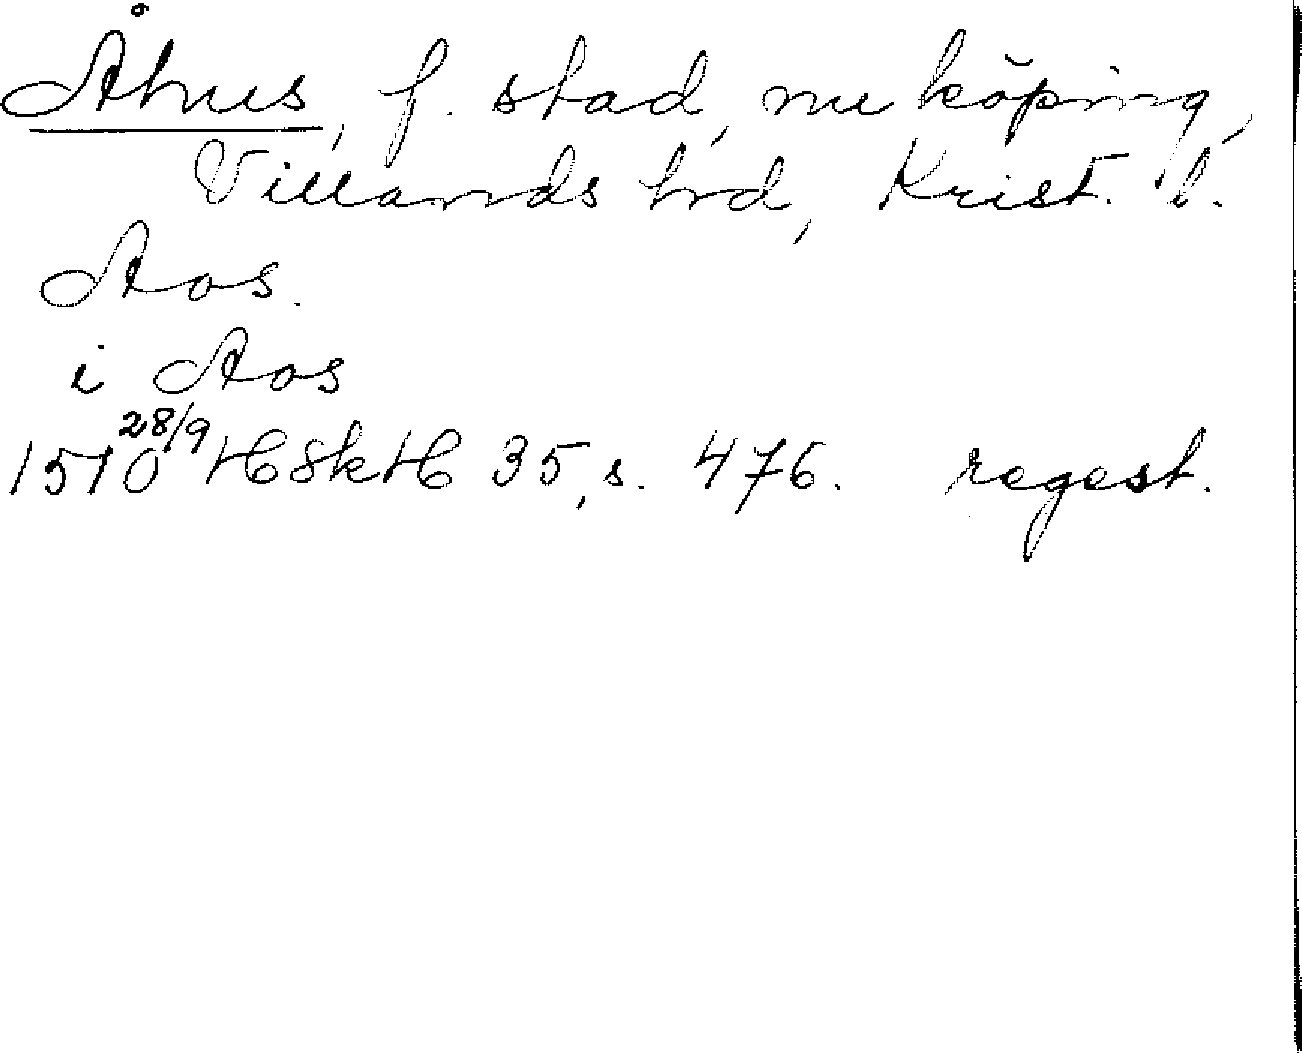 Åhus, f. stad, nu köping,
Villands hrd, Krist. l.
Aos.
i Aos
1510 28/9 HSkH 35, s. 476. regest.